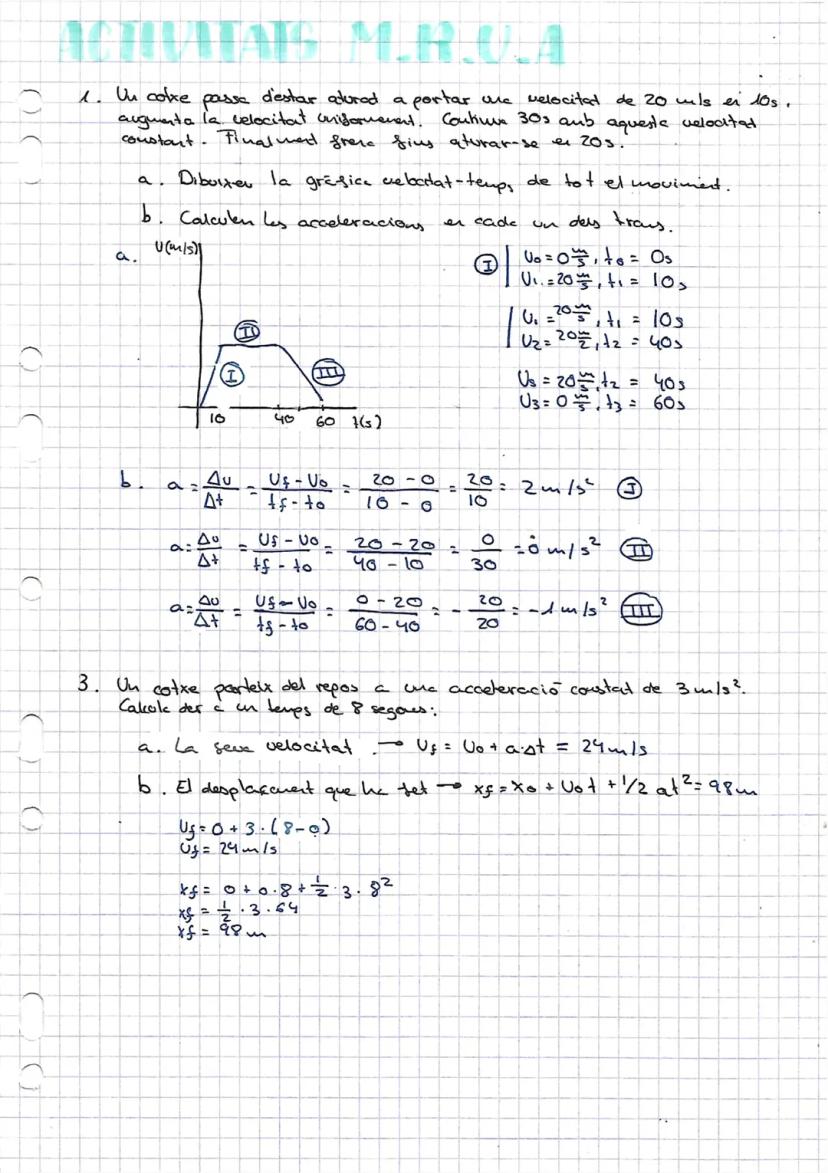 ACTIVITATS M.R.U.A
1. Un cotxe passa d'estar aturat a portar una velocitat de 20 m/s en 10s,
augmenta la velocitat uniformement. Continua 30s amb aquesta velocitat
constant. Finalment frena fins aturar-se en 20s.
a. Dibuixeu la gràfica velocitat-temps de tot el moviment.
b. Calculeu les acceleracions en cada un dels trams.
a. V(m/s)
I
II
III
10 40 60 t(s)
I V0 = 0 m/s, t0 = 0s
V1 = 20 m/s, t1 = 10s
V1 = 20 m/s, t1 = 10s
V2 = 20 m/2, t2 = 40s
V2 = 20 m/s, t2 = 40s
V3 = 0 m/s, t3 = 60s
b. a = Δv/Δt = (Vf - V0)/(tf - t0) = (20 - 0)/(10 - 0) = 20/10 = 2 m/s² I
a = Δv/Δt = (Vf - V0)/(tf - t0) = (20 - 20)/(40 - 10) = 0/30 = 0 m/s² II
a = Δv/Δt = (Vf - V0)/(tf - t0) = (0 - 20)/(60 - 40) = - 20/20 = -1 m/s² III
3. Un cotxe parteix del repos a una acceleració constat de 3 m/s².
Calcula der a un temps de 8 segons:
a. La seva velocitat → Vf = V0 + a·Δt = 24 m/s
b. El desplaçament que ha fet → xf = x0 + V0t + 1/2 at² = 98m
Vf = 0 + 3·(8-0)
Vf = 24 m/s
xf = 0 + 0·8 + 1/2 · 3 · 8²
xf = 1/2 · 3 · 64
xf = 98 m